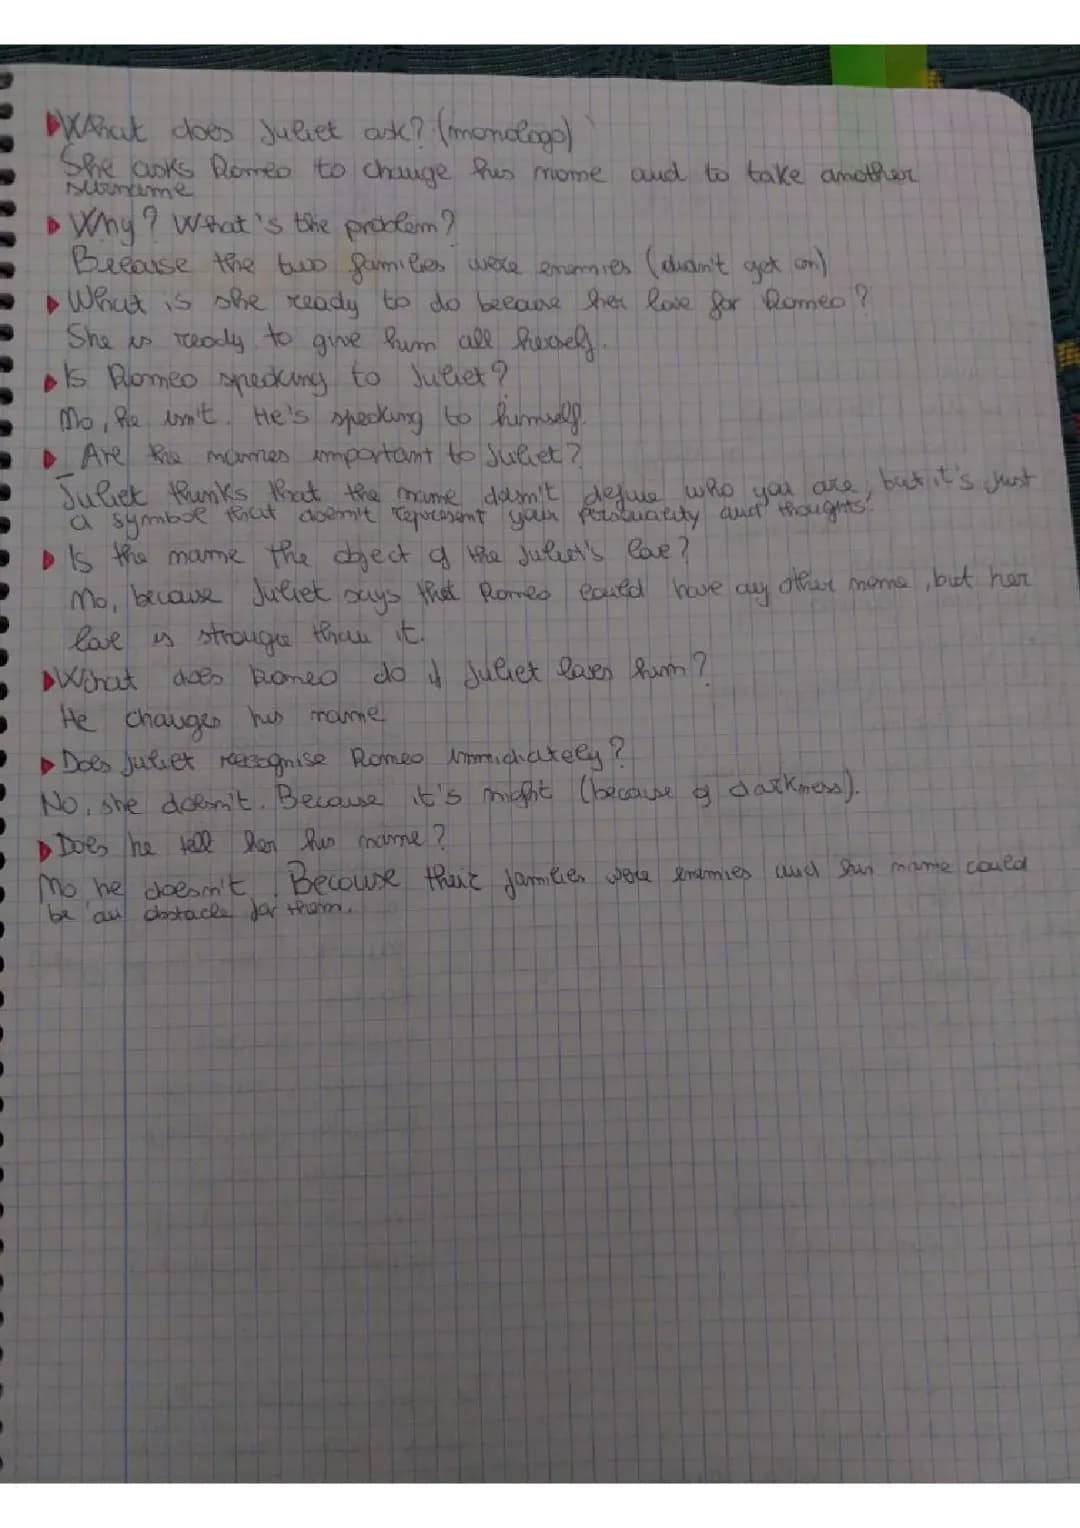 What does Juliet ask? (monologo)
She asks Romeo to change his name and to take another
surname
Why? What's the problem?
Because the two families were enemies (didn't get on)
What is she ready to do because her love for Romeo?
She is ready to give him all herself.
Is Romeo speaking to Juliet?
No, he isn't. He's speaking to himself.
Are the names important to Juliet?
Juliet thinks that the name dosn't define who you are, but it's just
a symbol that doesn't represent your personality and thoughts.
Is the name the object of the Juliet's love?
No, because Juliet says that Romeo could have any other name, but her
love is stronger than it.
What does Romeo do if Juliet loves him?
He changes his name
Does Juliet recognise Romeo immidiately?
No, she doesn't. Because it's night (because of darkness).
Does he tell her his name?
No he doesn't. Because their families were enemies and his name could
be an obstacle for them.